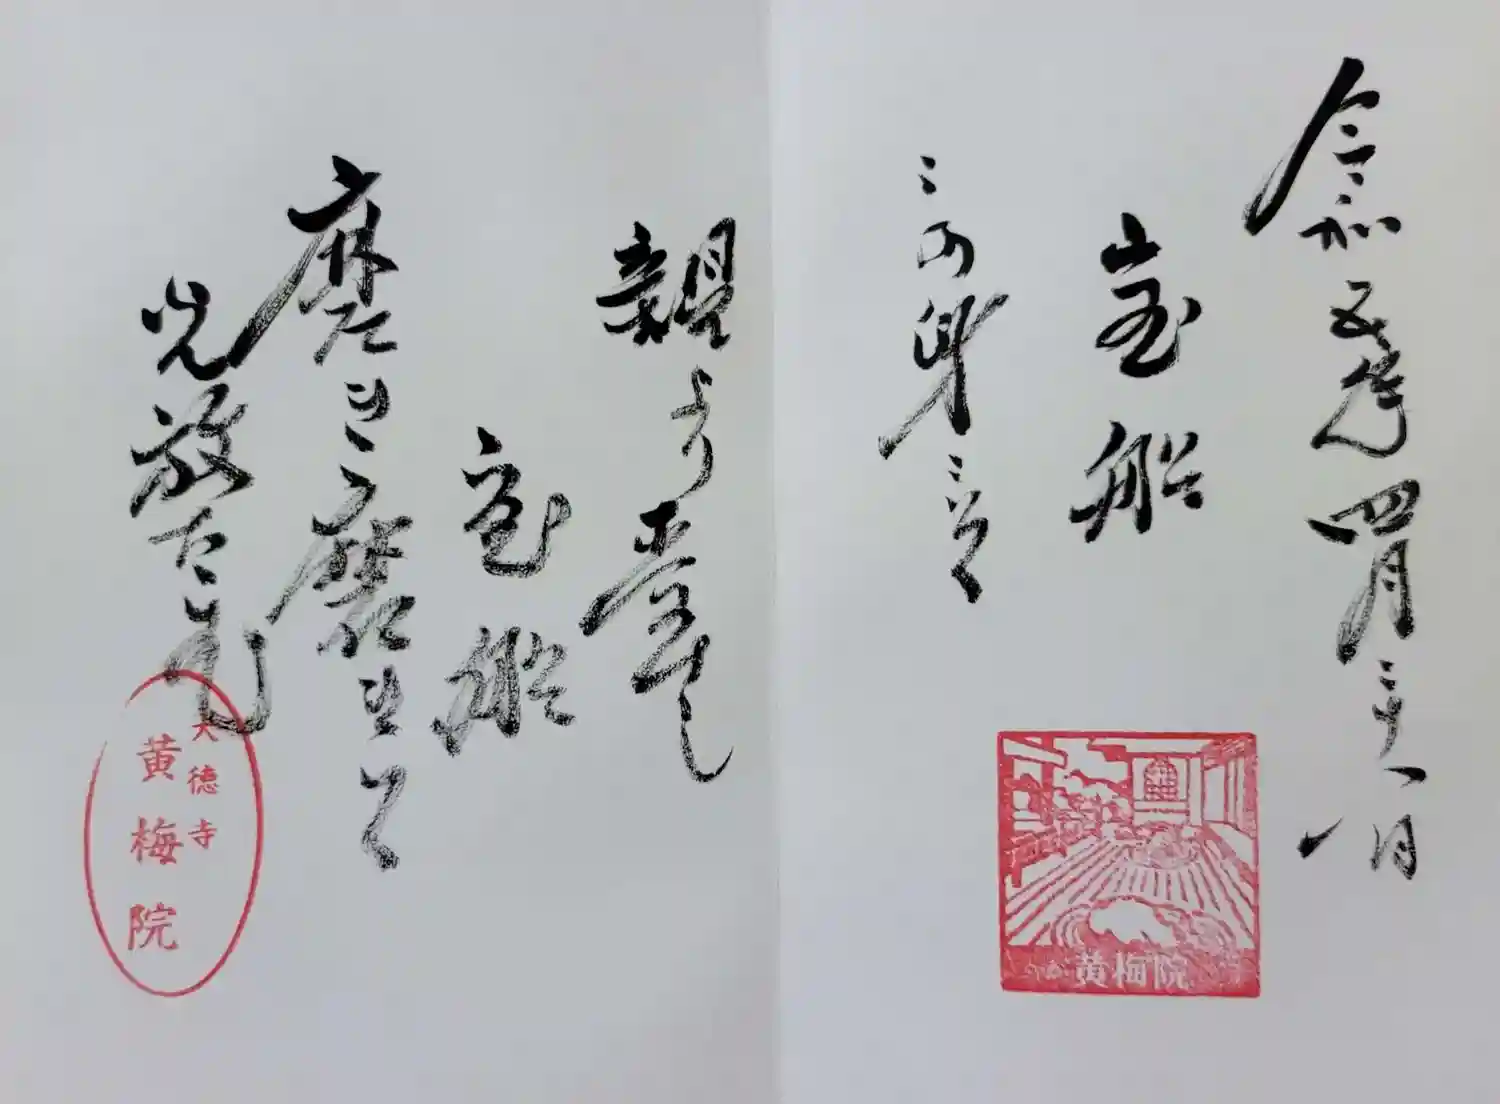 令和五年四月二十八日
宝船
この身こそ
親より享けし
宝船
磨き磨きて
光放た
大徳寺
黄梅院
黄梅院